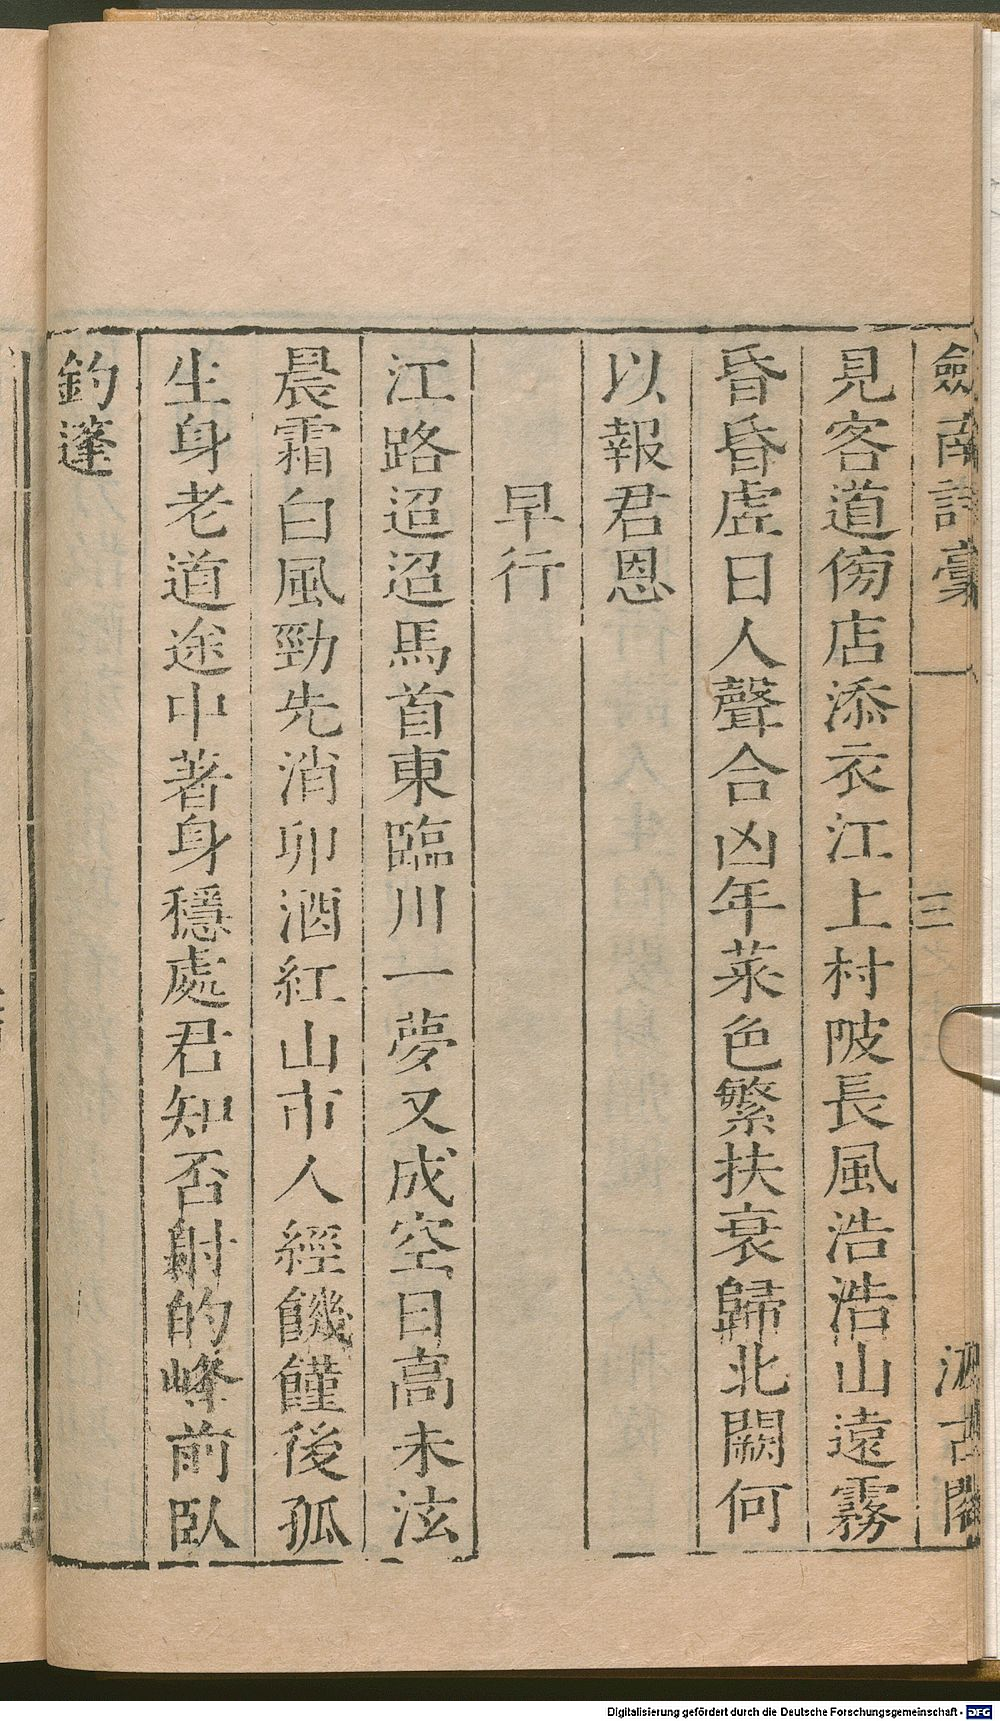 劔南詩藁
三
汲古閣
見客道傍店添衣江上村陂長風浩浩山遠霧
昏昏虛日人聲合凶年菜色繁扶衰歸北闕何
以報君恩
早行
江路迢迢馬首東臨川一夢又成空日高未泫
晨霜白風勁先消卯酒紅山市人經饑饉後孤
生身老道途中著身穩處君知否射的峰前臥
釣蓬
Digitalisierung gefördert durch die Deutsche Forschungsgemeinschaft - DFG